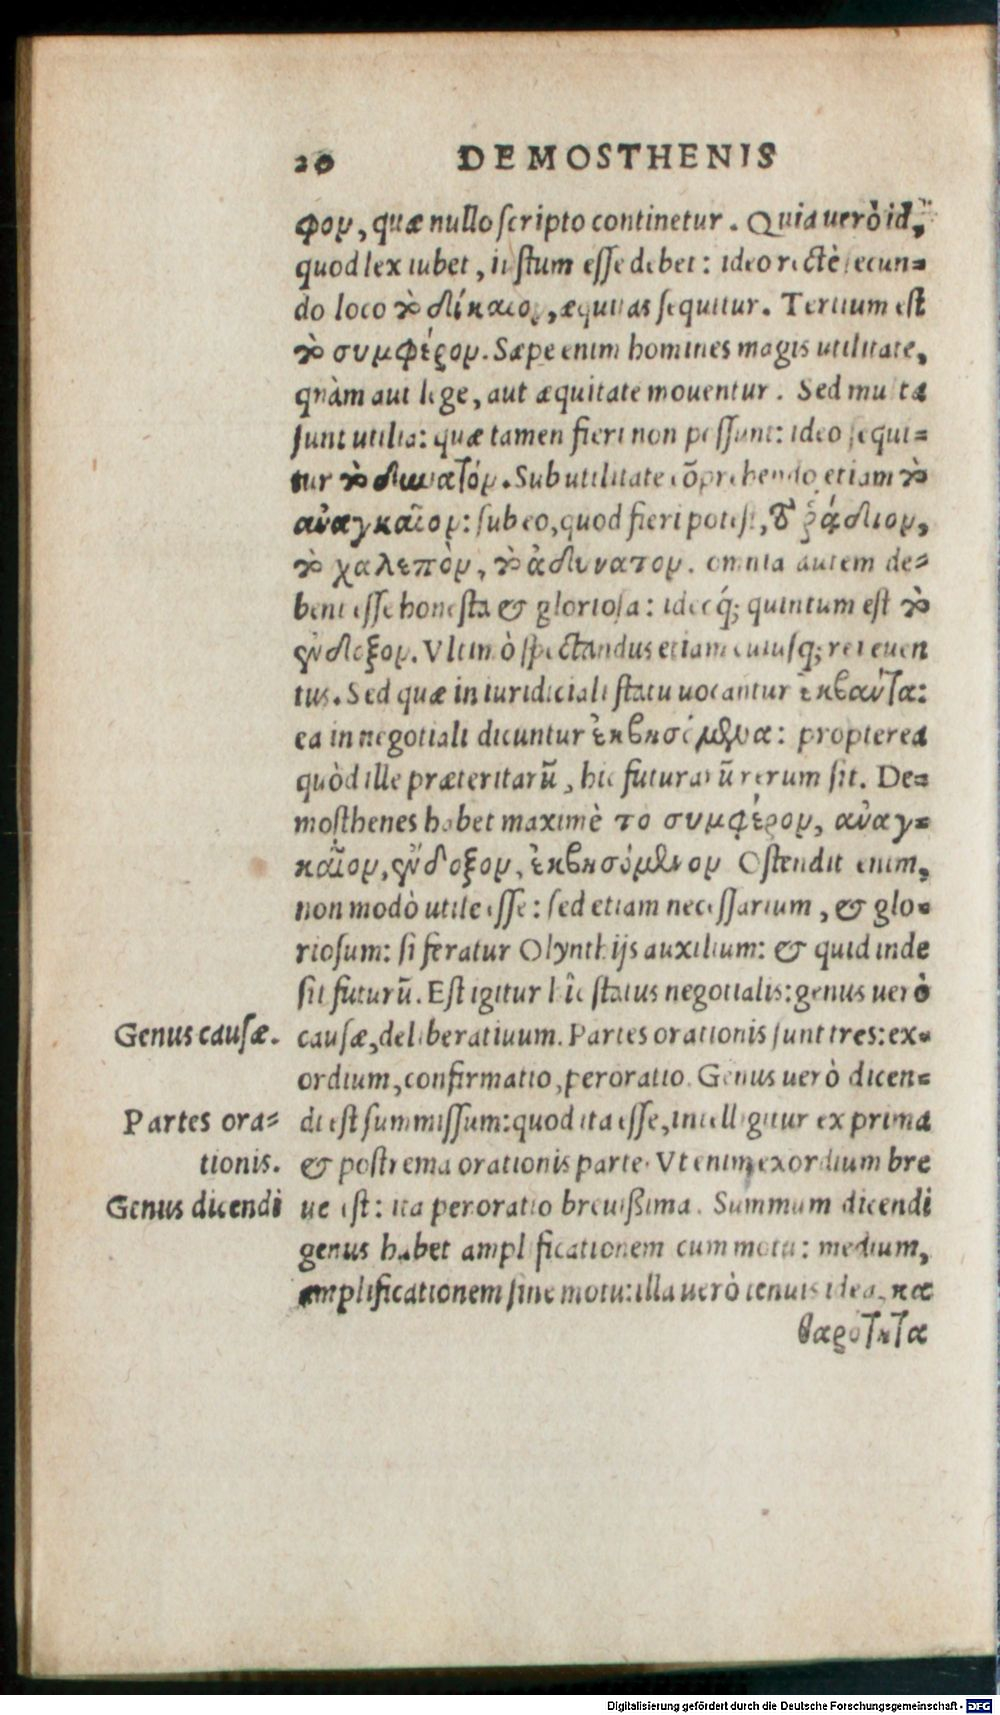 20 DEMOSTHENIS
φον, quæ nullo scripto continetur. Quia uerò id,
quod lex iubet, iustum esse debet: ideo rectè secun=
do loco τὸ δίκαιον, æquitas sequitur. Tertium est
τὸ συμφέρον. Sæpe enim homines magis utilitate,
quàm aut lege, aut æquitate mouentur. Sed multa
sunt utilia: quæ tamen fieri non possunt: ideo sequi=
tur τὸ δυνατόν. Sub utilitate cōprehendo etiam τὸ
ἀναγκαῖον: sub eo, quod fieri potest, τὸ ῥάδιον,
τὸ χαλεπὸν, τὸ ἀδύνατον. omnia autem de=
bent esse honesta & gloriosa: ideoq́; quintum est τὸ
ἔνδοξον. Vltimò spectandus etiam cuiusq; rei euen
tus. Sed quæ in iuridiciali statu uocantur ἐκβάντα:
ea in negotiali dicuntur ἐκβησόμενα: propterea
quòd ille præteritarū, hic futurarū rerum sit. De=
mosthenes habet maximè το συμφέρον, ἀναγ=
καῖον, ἔνδοξον, ἐκβησόμενον Ostendit enim,
non modò utile esse: sed etiam necessarium, & glo=
riosum: si feratur Olynthijs auxilium: & quid inde
sit futurū. Est igitur hîc status negotialis: genus uerò
Genus causæ.
causæ, deliberatiuum. Partes orationis sunt tres: ex=
ordium, confirmatio, peroratio. Genus uerò dicen=
Partes ora=
di est summissum: quod ita esse, intelligitur ex prima
tionis.
& postrema orationis parte. Vt enim exordium bre
Genus dicendi
ue est: ita peroratio breuißima. Summum dicendi
genus habet amplificationem cum motu: medium,
amplificationem sine motu: illa uerò tenuis idea, κα
θαρότητα
Digitalisierung gefördert durch die Deutsche Forschungsgemeinschaft - DFG